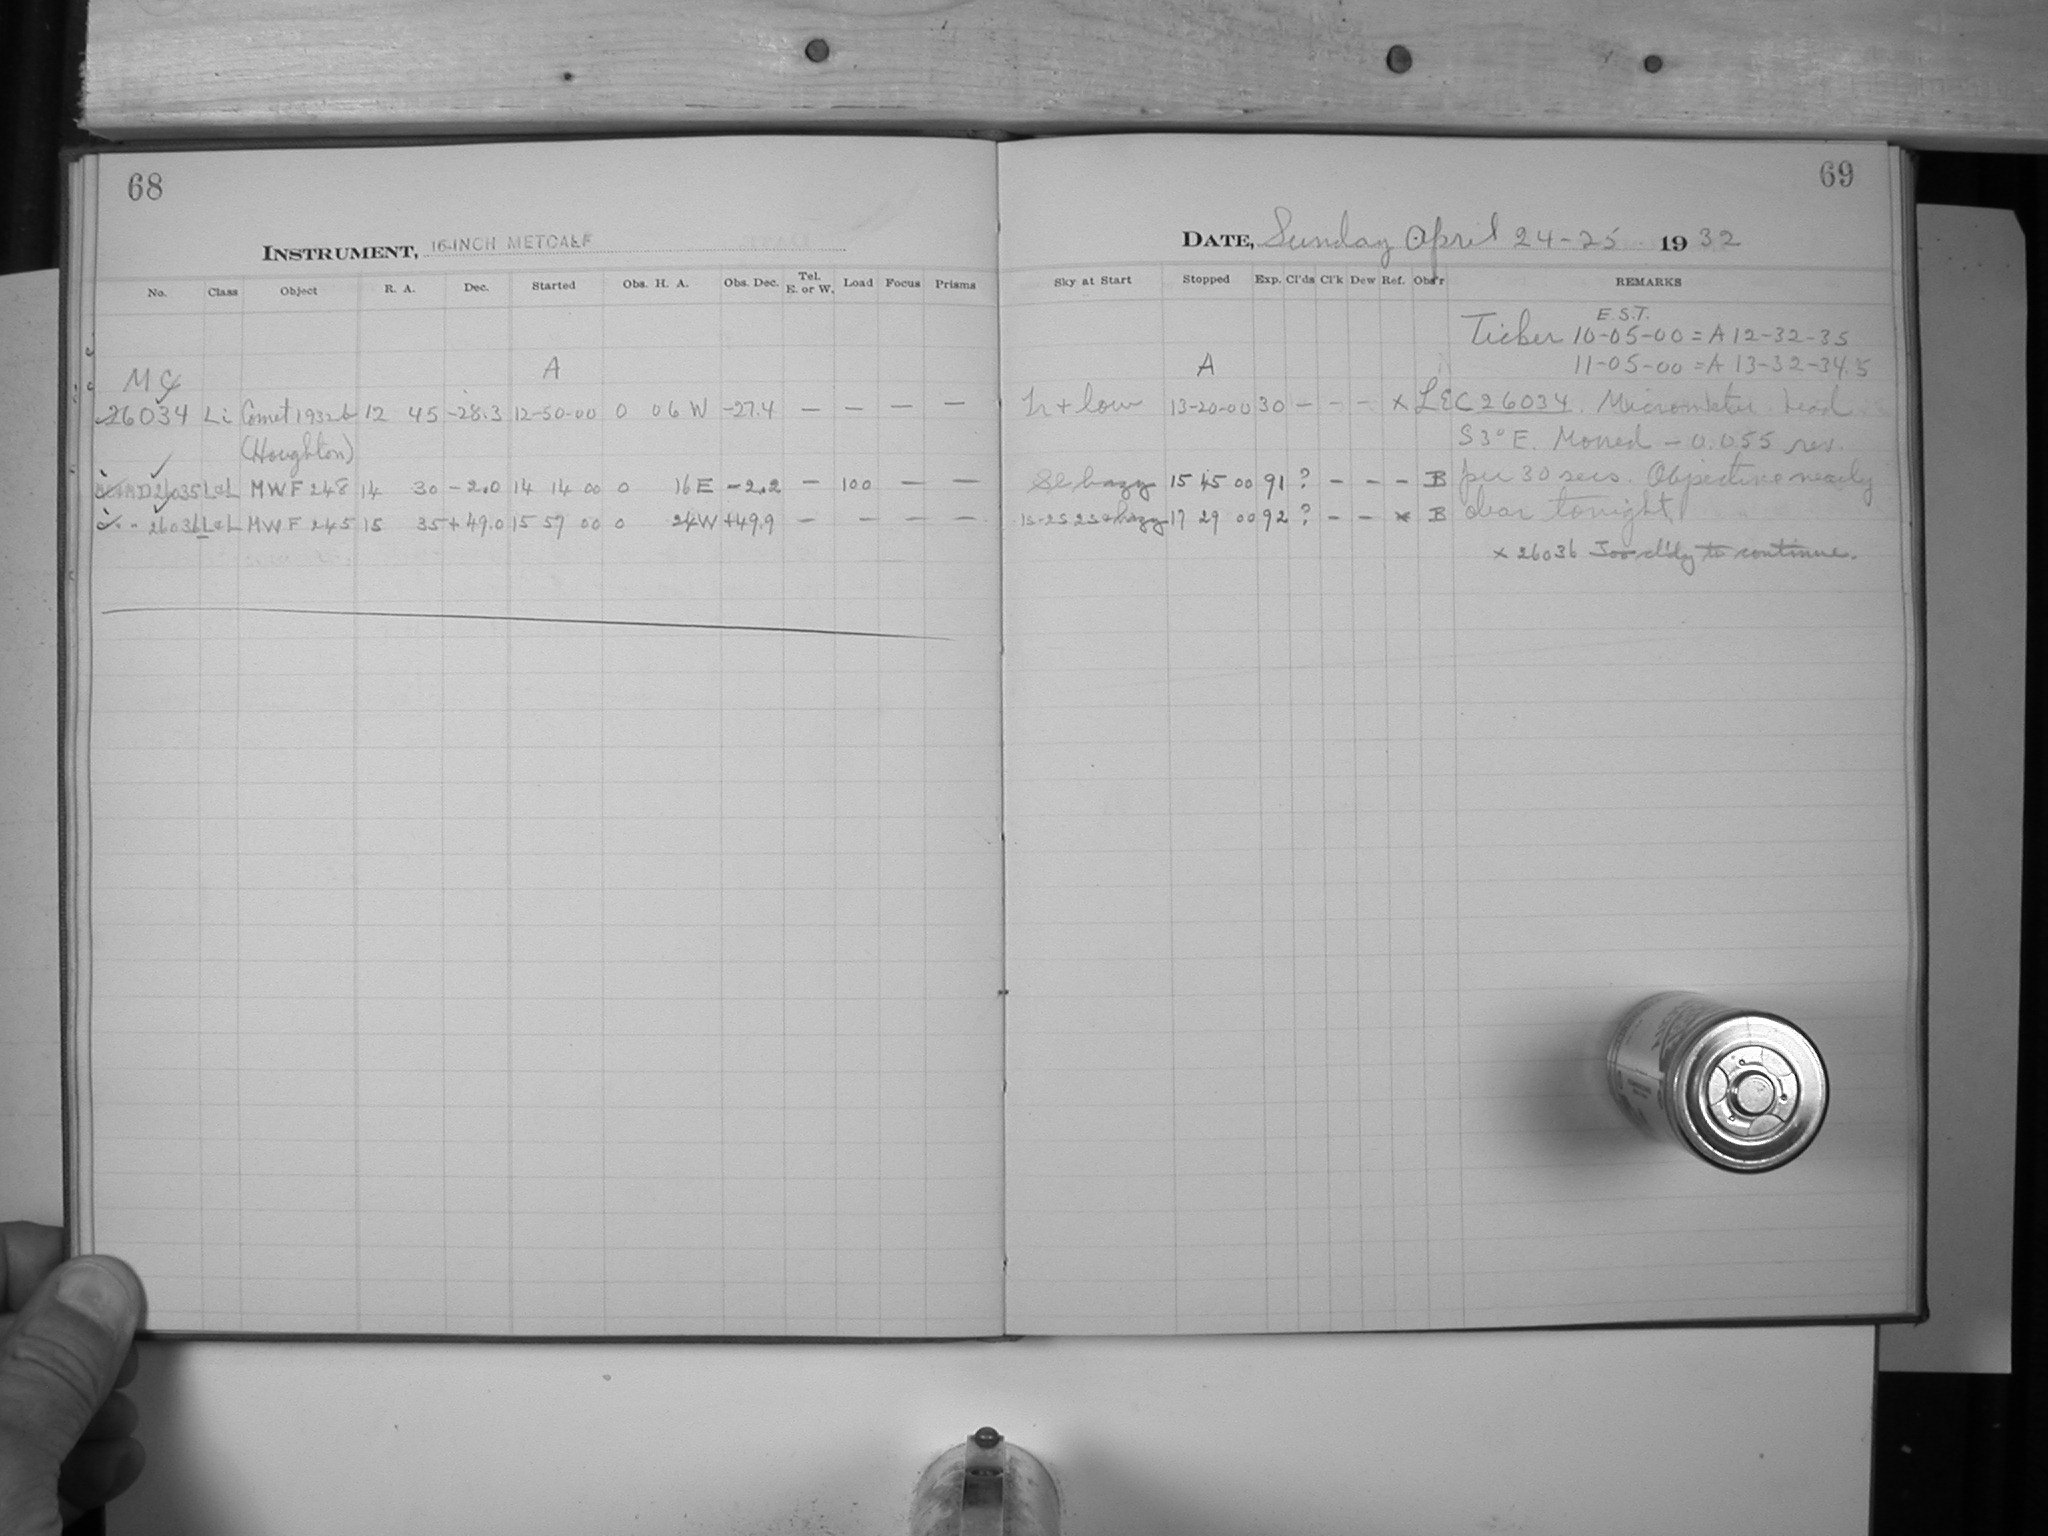 68
INSTRUMENT, 16-INCH METCALF
No. Class Object R. A. Dec. Started Obs. H. A. Obs. Dec. Tel. E. or W. Load Focus Prisms
A
MC
26034 Li Comet 1932b 12 45 -28.3 12-50-00 0 06 W -27.4 — — — —
(Houghton)
26035 L&L MWF 248 14 30 -2.0 14 14 00 0 16 E -2.2 — 100 — —
26036 L&L MWF 245 15 35 +49.0 15 57 00 0 24 W +49.9 — — — —
69
DATE, Sunday April 24-25 1932
Sky at Start Stopped Exp. Cl'ds Cl'k Dew Ref. Obs'r REMARKS
E.S.T.
Ticker 10-05-00 = A 12-32-35
A 11-05-00 = A 13-32-34.5
+ low 13-20-00 30 — — — x LEC 26034. Micrometer head
S 3° E. Moved - 0.055 rev.
Sl hazy 15 45 00 91 ? — — — B per 30 secs. Objective nearly
hazy 17 29 00 92 ? — — x B clear tonight.
x 26036 Too cl'dy to continue.